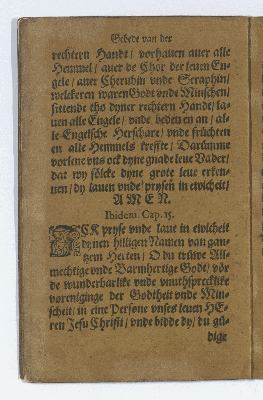 Gebede van der
rechtern Handt / vorhauen auer alle
Hemmel / auer de Chor der leuen En-
gele / auer Cherubin vnde Seraphin /
welckeren waren Godt vnde Minschen /
sittende tho dyner rechtern Handt / la-
uen alle Engele / vnde beden en an / al-
le Engelsche Herschare / vnde früchten
en alle Hemmels kreffte / Darümme
vorlene vns ock dyne gnade leue Vader /
dat wy sölcke dyne grote leue erken-
nen / dy lauen vnde prysen in ewicheit /
AMEN.
Ibidem Cap. 15.
ICK pryse vnde laue in ewicheit
dynen hilligen Namen van gan-
tzem Herten / O du trüwe All-
mechtige vnde Barmhertige Godt / vör
de wunderbarlike vnde vnuthsprecklike
voreninge der Godtheit vnde Min-
scheit / in eine Persone vnses leuen HE-
ren Jesu Christi / vnde bidde dy / du gü-
dige